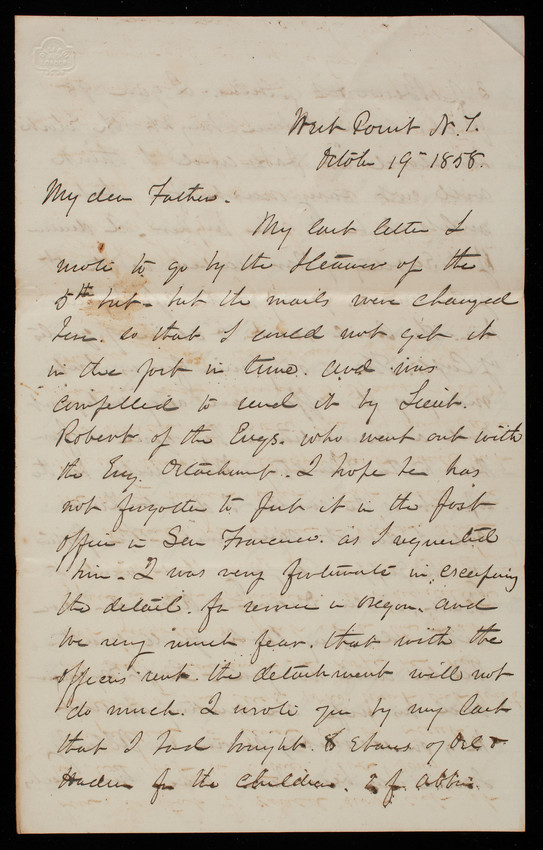 West Point N.Y.
October 19th 1858.
My dear Father.
My last letter I
wrote to go by the Steamer of the
5th inst. but the mails were changed
here. so that I could not get it
in the post in time. and was
compelled to send it by Lieut.
Robert of the Engs. who went out with
the Eng. Detachment. I hope he has
not forgotten to put it in the post
office in San Francisco. as I requested
him. I was very fortunate in escaping
the detail. for service in Oregon. and
we very much fear. that with the
officers sent. the detachment will not
do much. I wrote you by my last
that I had bought. 8 of &
for the children. 2 for